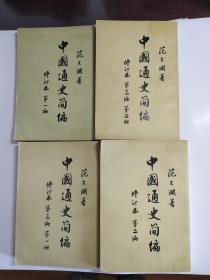 范文瀾著
中國通史简编
修订本 第一编
范文瀾著
中國通史简编
修订本 第三编 第二册
范文瀾著
中國通史简编
修订本 第三编 第一册
范文瀾著
中國通史简编
修订本 第二编